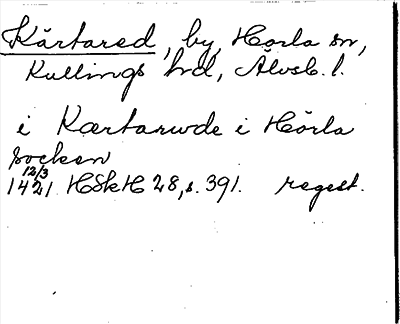 Kärtared, by, Hörla sn,
Kullings hd, Älvsb. l.
i Kærtarwde i Hörla
socken
12/3
1421 HSkH 28, s. 391. regest.